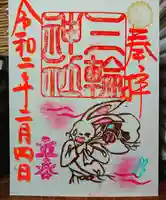 奉拝
三輪
神社
令和二年十二月四日